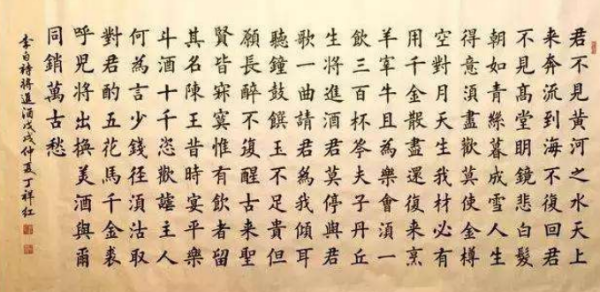 君不見黃河之水天上
来奔流到海不復回君
不見高堂明鏡悲白髮
朝如青絲暮成雪人生
得意須盡歡莫使金樽
空對月天生我材必有
用千金散盡還復来烹
羊宰牛且為樂會須一
飲三百杯岑夫子丹丘
生將進酒君莫停與君
歌一曲請君為我傾耳
聽鐘鼓饌玉不足貴但
願長醉不復醒古来聖
賢皆寂寞惟有飲者留
其名陳王昔時宴平樂
斗酒十千恣歡謔主人
何為言少錢徑須沽取
對君酌五花馬千金裘
呼兒將出換美酒與爾
同銷萬古愁
李白詩將進酒戊戌仲夏丁祥红